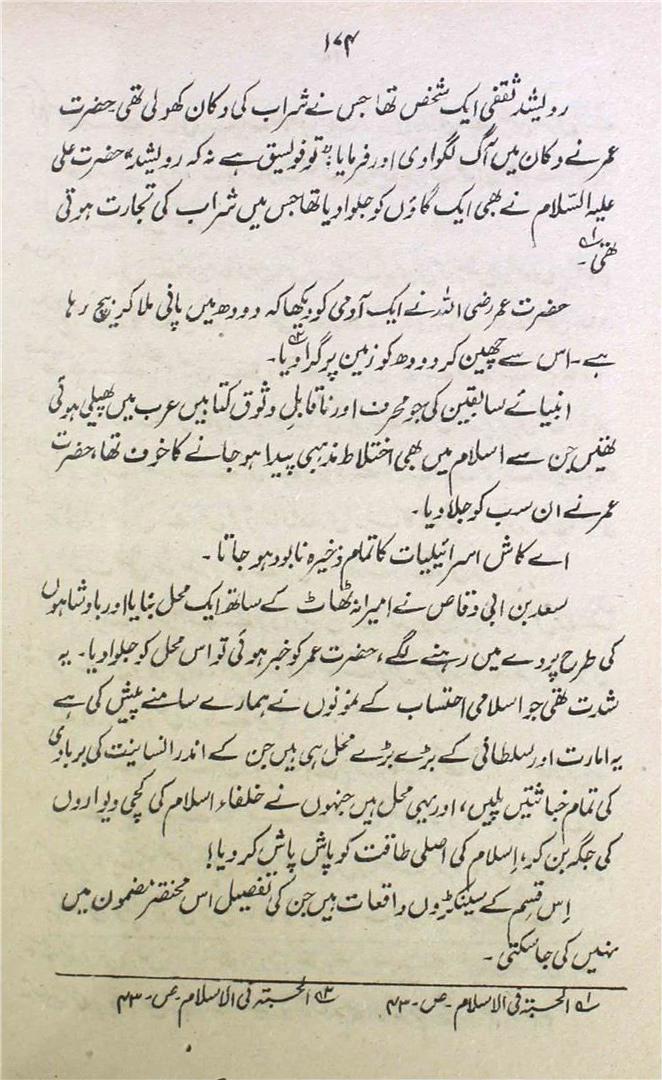 ۱۷۴
رویشد ثقفی ایک شخص تھا جس نے شراب کی دکان کھولی تھی حضرت
عمر نے دکان میں آگ لگوا دی اور فرمایا: "تو فویسق ہے نہ کہ رویشد" حضرت علی
علیہ السّلام نے بھی ایک گاؤں کو جلوا دیا تھا جس میں شراب کی تجارت ہوتی
تھی۔ ؎۱
حضرت عمر رضی اللہ نے ایک آدمی کو دیکھا کہ دودھ میں پانی ملا کر بیچ رہا
ہے۔ اس سے چھین کر دودھ کو زمین پر گرا دیا۔ ؎۲
انبیائے سابقین کی جو محرف اور ناقابلِ وثوق کتابیں عرب میں پھیلی ہوئی
تھیں جن سے اسلام میں بھی اختلاط مذہبی پیدا ہو جانے کا خوف تھا، حضرت
عمر نے ان سب کو جلا دیا۔
اے کاش اسرائیلیات کا تمام ذخیرہ نابود ہو جاتا۔
سعد بن ابی وقاص نے امیرانہ ٹھاٹ کے ساتھ ایک محل بنایا اور بادشاہوں
کی طرح پردے میں رہنے لگے، حضرت عمر کو خبر ہوئی تو اس محل کو جلوا دیا۔ یہ
شدت تھی جو اسلامی احتساب کے نمونوں نے ہمارے سامنے پیش کی ہے
یہ امارت اور سلطانی کے بڑے بڑے محل ہی ہیں جن کے اندر انسانیت کی بربادی
کی تمام خباثتیں پلیں، اور یہی محل ہیں جنہوں نے خلفاء اسلام کی کچی دیواروں
کی جگہ بن کر، اِسلام کی اصلی طاقت کو پاش پاش کر دیا!
اِس قسم کے سینکڑوں واقعات ہیں جن کی تفصیل اس مختصر مضمون میں
نہیں کی جا سکتی۔
؎۱ الحسبۃ فی الاسلام۔ ص۔ ۴۳ ؎۲ الحسبۃ فی الاسلام۔ ص۔ ۴۳